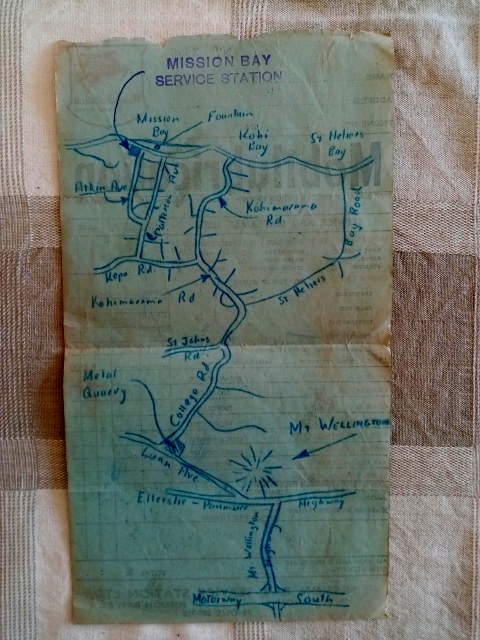 MISSION BAY
SERVICE STATION
Mission
Bay
Fountain
Kohi
Bay
St Heliers
Bay
Atkin Ave
Patteson Ave
Kohimarama
Rd
Bay Road
Kepa Rd
Kohimarama
Rd
St Heliers
St Johns
Rd
Metal
Quarry
College Rd
Mt WELLINGTON
Luan Ave
Ellerslie - Panmure Highway
Mt Wellington
Highway
Motorway South